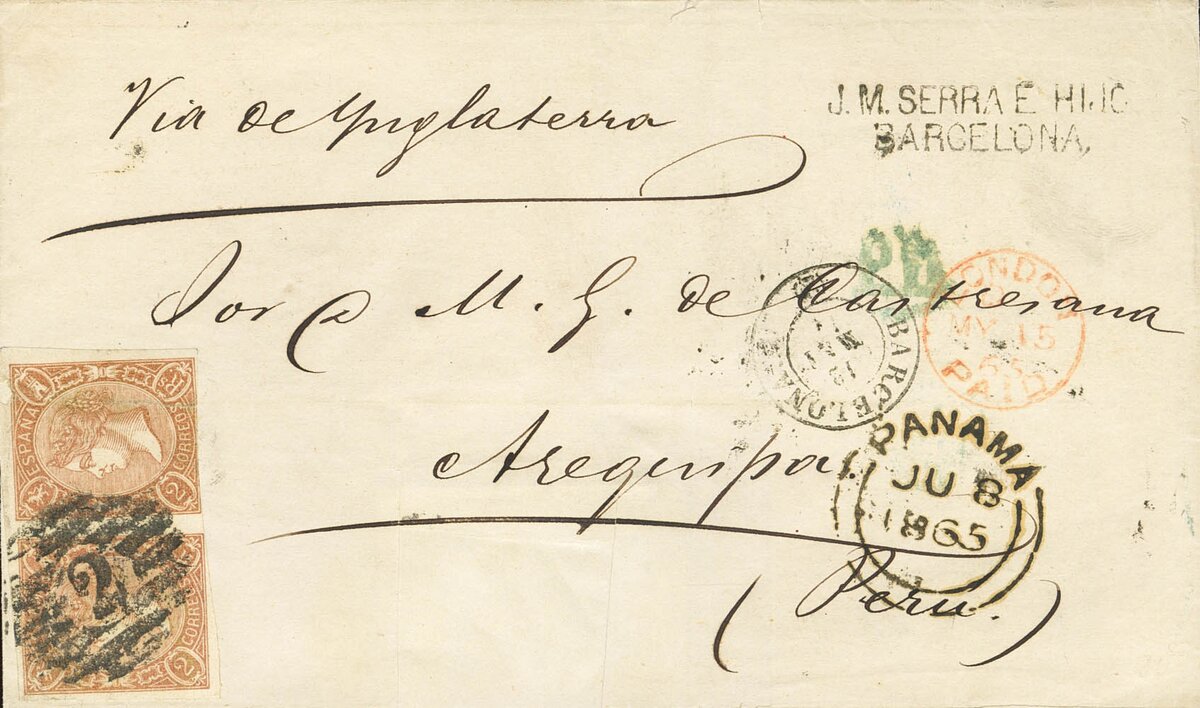 Via de Ynglaterra
J. M. SERRA E HIJO
BARCELONA,
Sor D M. G. de Castresana
Arequipa.
(Perú.)
BARCELONA
LONDON
MY 15
65
PAID
PANAMA
JU 8
1865
ESPAÑA
CORREOS
2
2
CORREOS
2